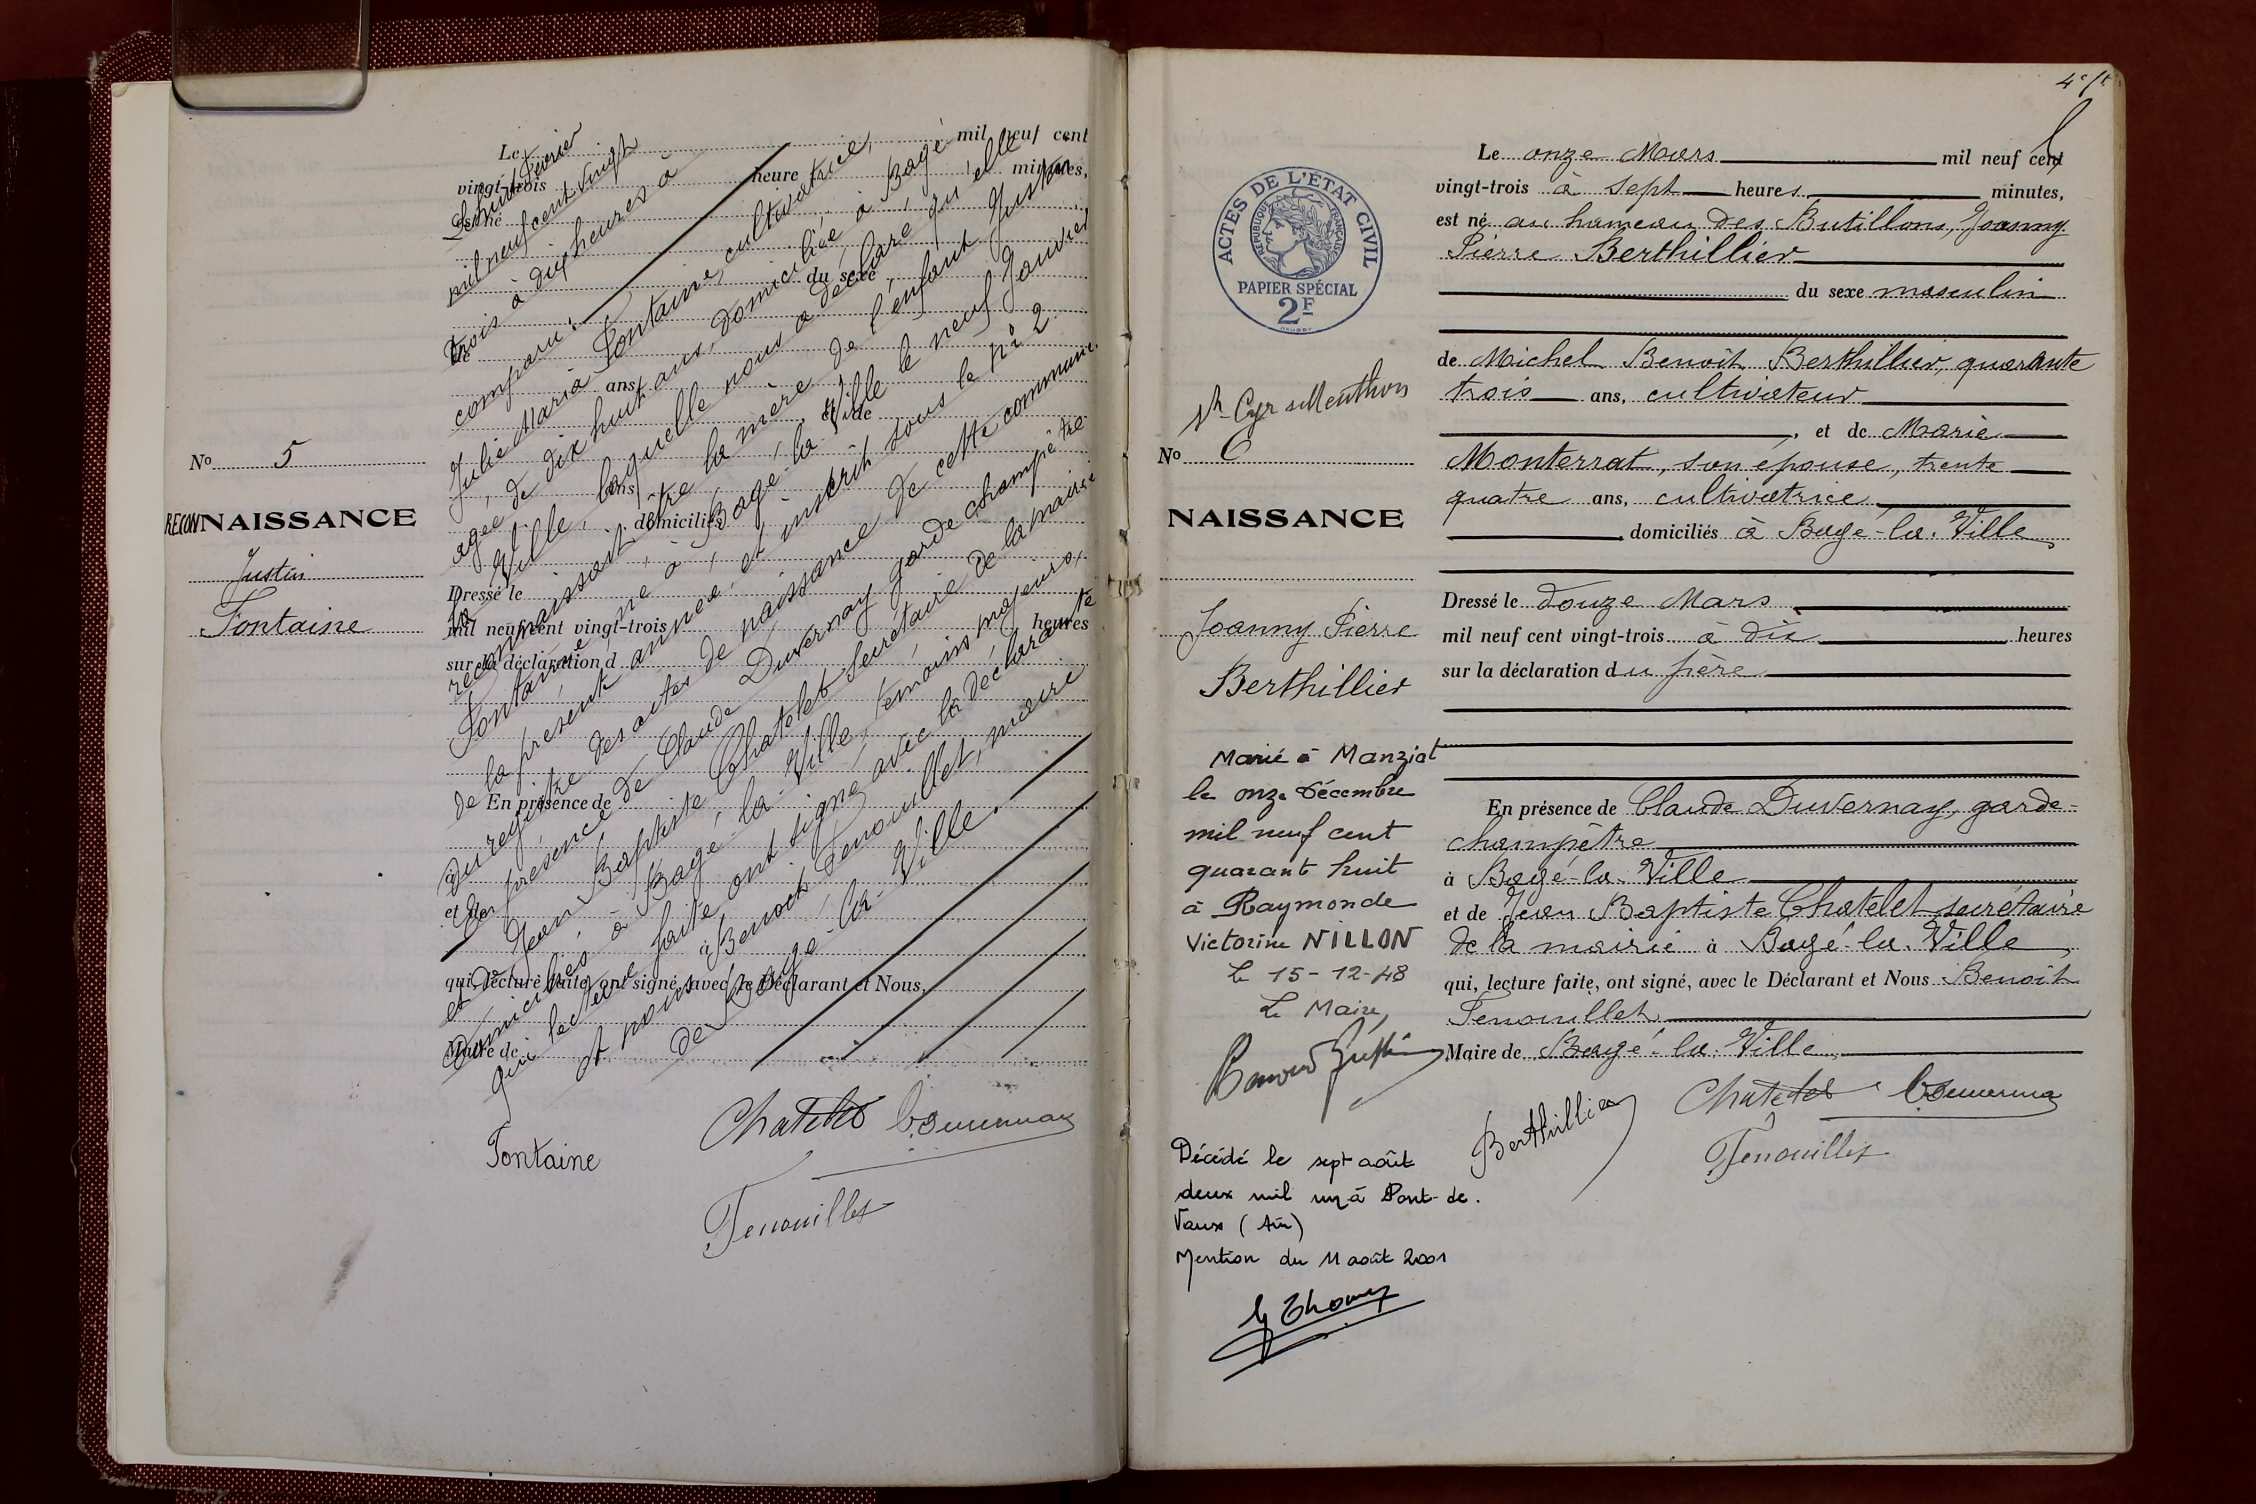 Le mil neuf cent
vingt-trois heure minutes,
est né
du sexe
de
ans
et de
ans
domiciliés
Dressé le
mil neuf cent vingt-trois heures
sur la déclaration d
En présence de
à
et de
à
qui, lecture faite, ont signé, avec le Déclarant et Nous,
Maire de
No 5
RECONNAISSANCE
Justin
Fontaine
Le huit Février
mil neuf cent vingt
trois à dix heures a
comparu:
Julie Maria Fontaine, cultivatrice,
agée de dix huit ans, domiciliée à Bagé
la Ville, laquelle nous a déclaré qu'elle
reconnaissait être la mère de l'enfant Justin
Fontaine né à Bagé-la-Ville le neuf Janvier
de la présente année, et inscrit sous le no 2
du registre des actes de naissance de cette commune.
En présence de Claude Duvernay garde champêtre
et de Jean Baptiste Chatelet secrétaire de la mairie
domiciliés à Bagé-la-Ville, témoins majeurs,
qui lecture faite ont signé avec la déclarante
et nous Benoit Fenouillet, maire
de Bagé-la-Ville.
Fontaine
Chatelet
Fenouillet
4e ft
ACTES DE L'ÉTAT CIVIL
RÉPUBLIQUE FRANÇAISE
PAPIER SPÉCIAL
2F
St Cyr s/Menthon
No 6
NAISSANCE
Joanny Pierre
Berthillier
Marié à Manziat
le onze décembre
mil neuf cent
quarant huit
à Raymonde
Victorine NILLON
le 15-12-48
Le Maire,
Décédé le sept août
deux mil un à Pont-de-
Vaux (Ain)
Mention du 11 août 2001
Le onze Mars mil neuf cent
vingt-trois à sept heures minutes,
est né au hameau des Butillons, Joanny
Pierre Berthillier
du sexe masculin
de Michel Benoit Berthillier, quarante
trois ans, cultivateur
, et de Marie
Monterrat, son épouse, trente
quatre ans, cultivatrice
domiciliés à Bagé-la-Ville
Dressé le douze Mars
mil neuf cent vingt-trois à dix heures
sur la déclaration du père
En présence de Claude Duvernay, garde-
champêtre
à Bagé-la-Ville
et de Jean Baptiste Chatelet secrétaire
de la mairie à Bagé-la-Ville,
qui, lecture faite, ont signé, avec le Déclarant et Nous Benoit
Fenouillet
Maire de Bagé-la-Ville
Berthillier
Chatelet
Fenouillet